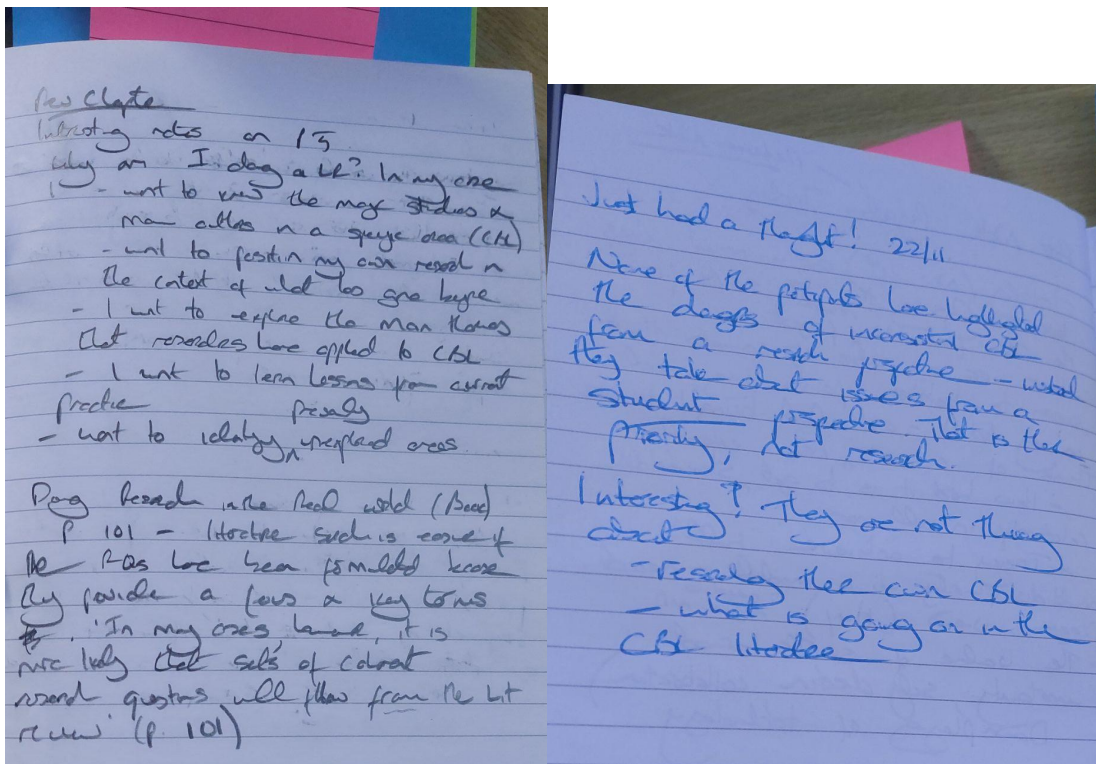 New Chapter
Interesting notes on 
Why am I doing a LR? In my case
- want to know the major studies &
main authors in a specific area (CBL)
- want to position my own research in
the context of what has gone before
- I want to explore the main themes
that researchers have applied to CBL
- I want to learn lessons from current
practice
- want to identify previously unexplored areas
Doing Research in the Real World (book)
P 101 - literature search is easier if
the RQs have been formulated because
they provide a focus & key terms
. 'In many cases however, it is
more likely that sets of coherent
research questions will follow from the lit
review' (p. 101)
Just had a thought! 22/11
None of the participants have highlighted
the dangers of incorrect CBL
from a research perspective - instead
they talk about issues from a
student perspective. That is their
priority, not research.
Interesting! They are not thinking
about
- researching their own CBL
- what is going on in the
CBL literature